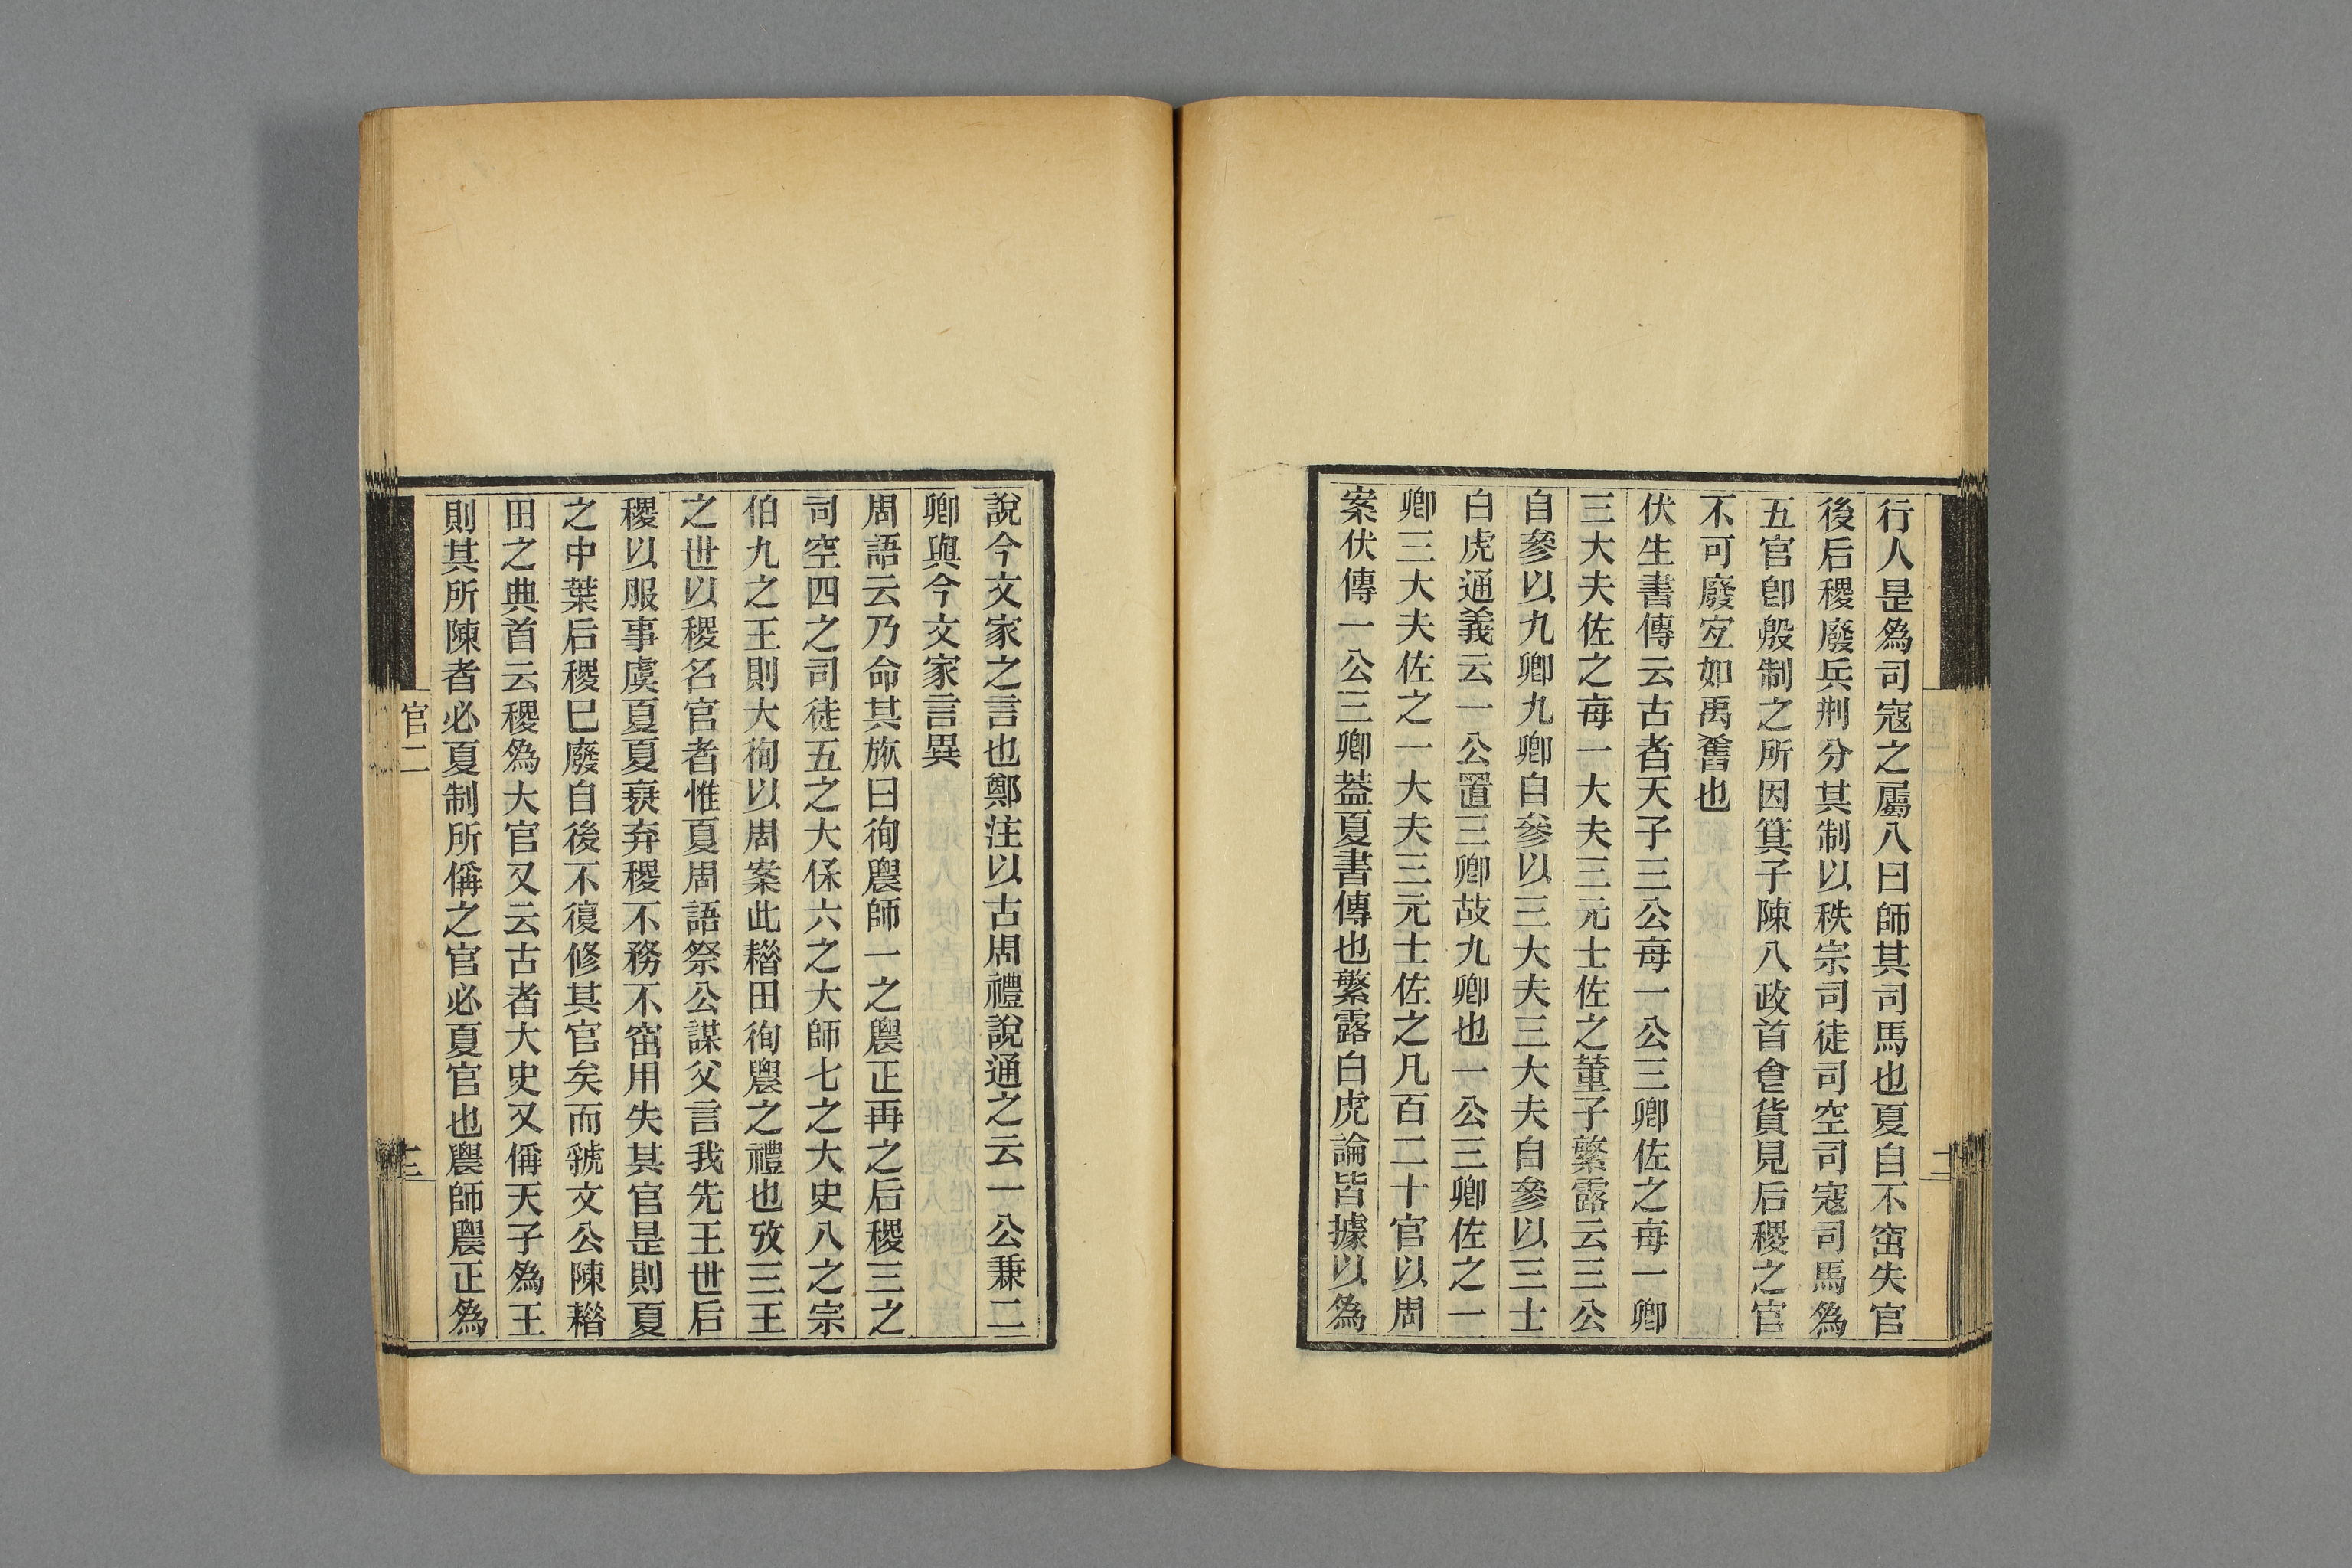 行人是爲司寇之屬八曰師其司馬也夏自不窋失官
後后稷廢兵刑分其制以秩宗司徒司空司寇司馬爲
五官卽殷制之所因箕子陳八政首食貨見后稷之官
不可廢宐如禹舊也
伏生書傳云古者天子三公每一公三卿佐之每一卿
三大夫佐之每一大夫三元士佐之董子繁露云三公
自參以九卿九卿自參以三大夫三大夫自參以三士
白虎通義云一公置三卿故九卿也一公三卿佐之一
卿三大夫佐之一大夫三元士佐之凡百二十官以周
案伏傳一公三卿葢夏書傳也繁露白虎論皆據以爲
說今文家之言也鄭注以古周禮說通之云一公兼二
卿與今文家言異
周語云乃命其旅曰徇農師一之農正再之后稷三之
司空四之司徒五之大保六之大師七之大史八之宗
伯九之王則大徇以周案此耤田徇農之禮也攷三王
之世以稷名官者惟夏周語祭公謀父言我先王世后
稷以服事虞夏夏衰弃稷不務不窋用失其官是則夏
之中葉后稷已廢自後不復修其官矣而虢文公陳耤
田之典首云稷爲大官又云古者大史又偁天子爲王
則其所陳者必夏制所偁之官必夏官也農師農正爲
官二